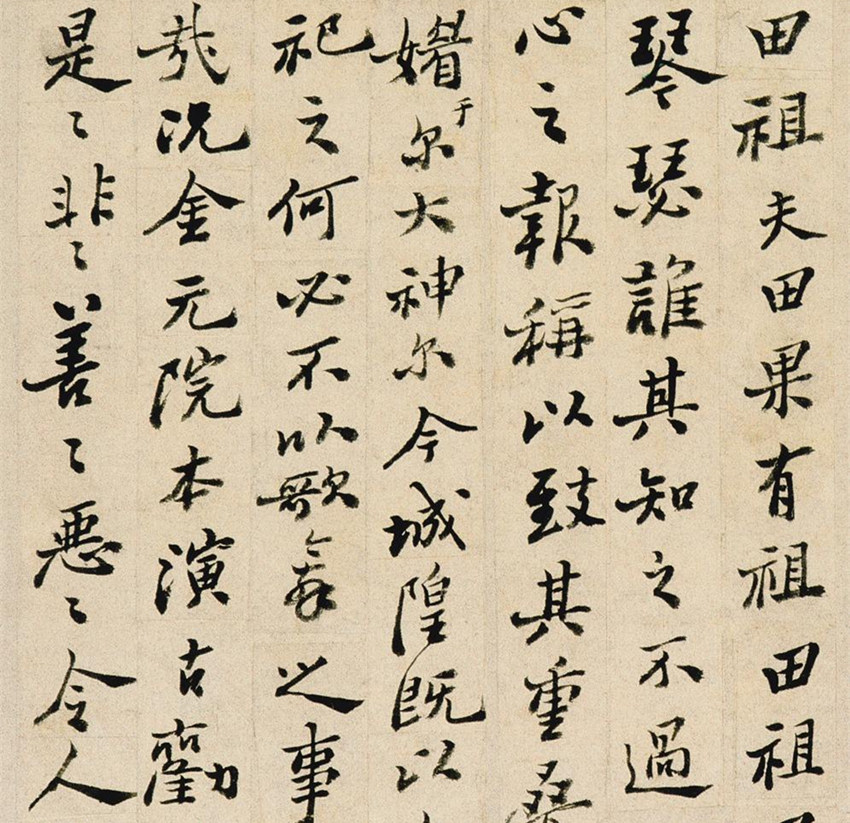 田祖夫田果有祖田祖
琴瑟誰其知之不過
心之報稱以致其重桑
媚于尔大神尔今城隍既以
祀之何必不以歌舞之事
哉况金元院本演古勸
是〻非〻善〻惡〻令人